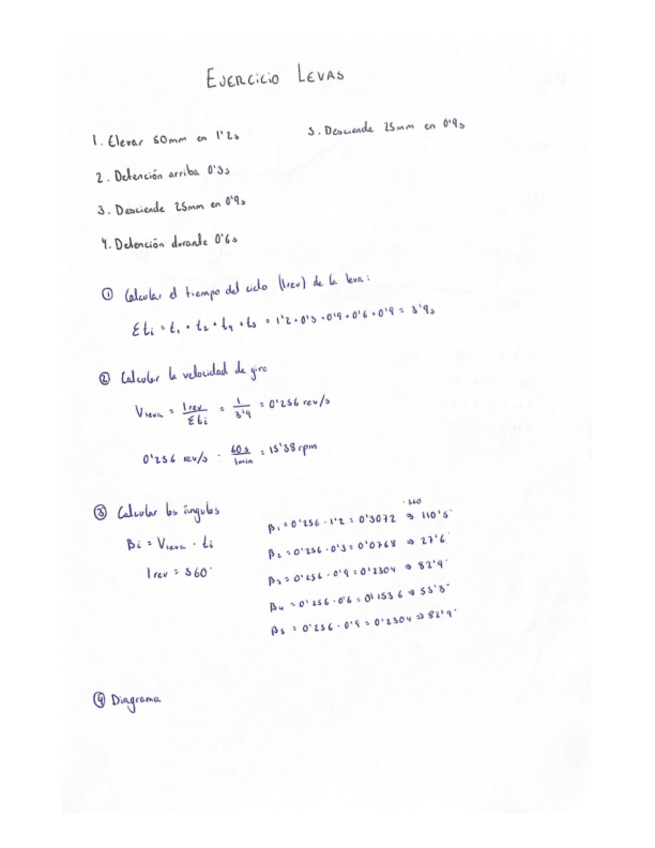 EJERCICIO LEVAS
1. Elevar 50mm en 1'2s
2. Detención arriba 0'3s
3. Desciende 25mm en 0'9s
4. Detención durante 0'6s
5. Desciende 25mm en 0'9s
① Calcular el tiempo del ciclo (1rev) de la leva:
Σti = t₁ + t₂ + t₄ + t₅ = 1'2 + 0'3 + 0'9 + 0'6 + 0'9 = 3'9s
② Calcular la velocidad de giro
Vleva = 1rev / Σti = 1 / 3'9 = 0'256 rev/s
0'256 rev/s · 60s / 1min = 15'38 rpm
③ Calcular los ángulos
Bi = Vleva · ti
1rev = 360°
·360
β₁ = 0'256 · 1'2 = 0'3072 ⇒ 110'5°
β₂ = 0'256 · 0'3 = 0'0768 ⇒ 27'6°
β₃ = 0'256 · 0'9 = 0'2304 ⇒ 82'9°
β₄ = 0'256 · 0'6 = 0'1536 ⇒ 55'3°
β₅ = 0'256 · 0'9 = 0'2304 ⇒ 82'9°
④ Diagrama